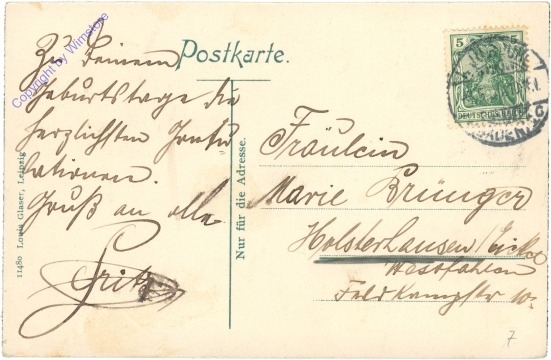 Postkarte.
Zu Deinem
Geburtstage die
herzlichsten Gratu
lationen.
Gruß an alle
Fritz
Fräulein
Marie Brünger
Holsterhausen
Westfalen
Feldkampstr 10.
Nur für die Adresse.
11480 Louis Glaser, Leipzig
5 5
DEUTSCHES REICH
Copyright by Wimstore
7